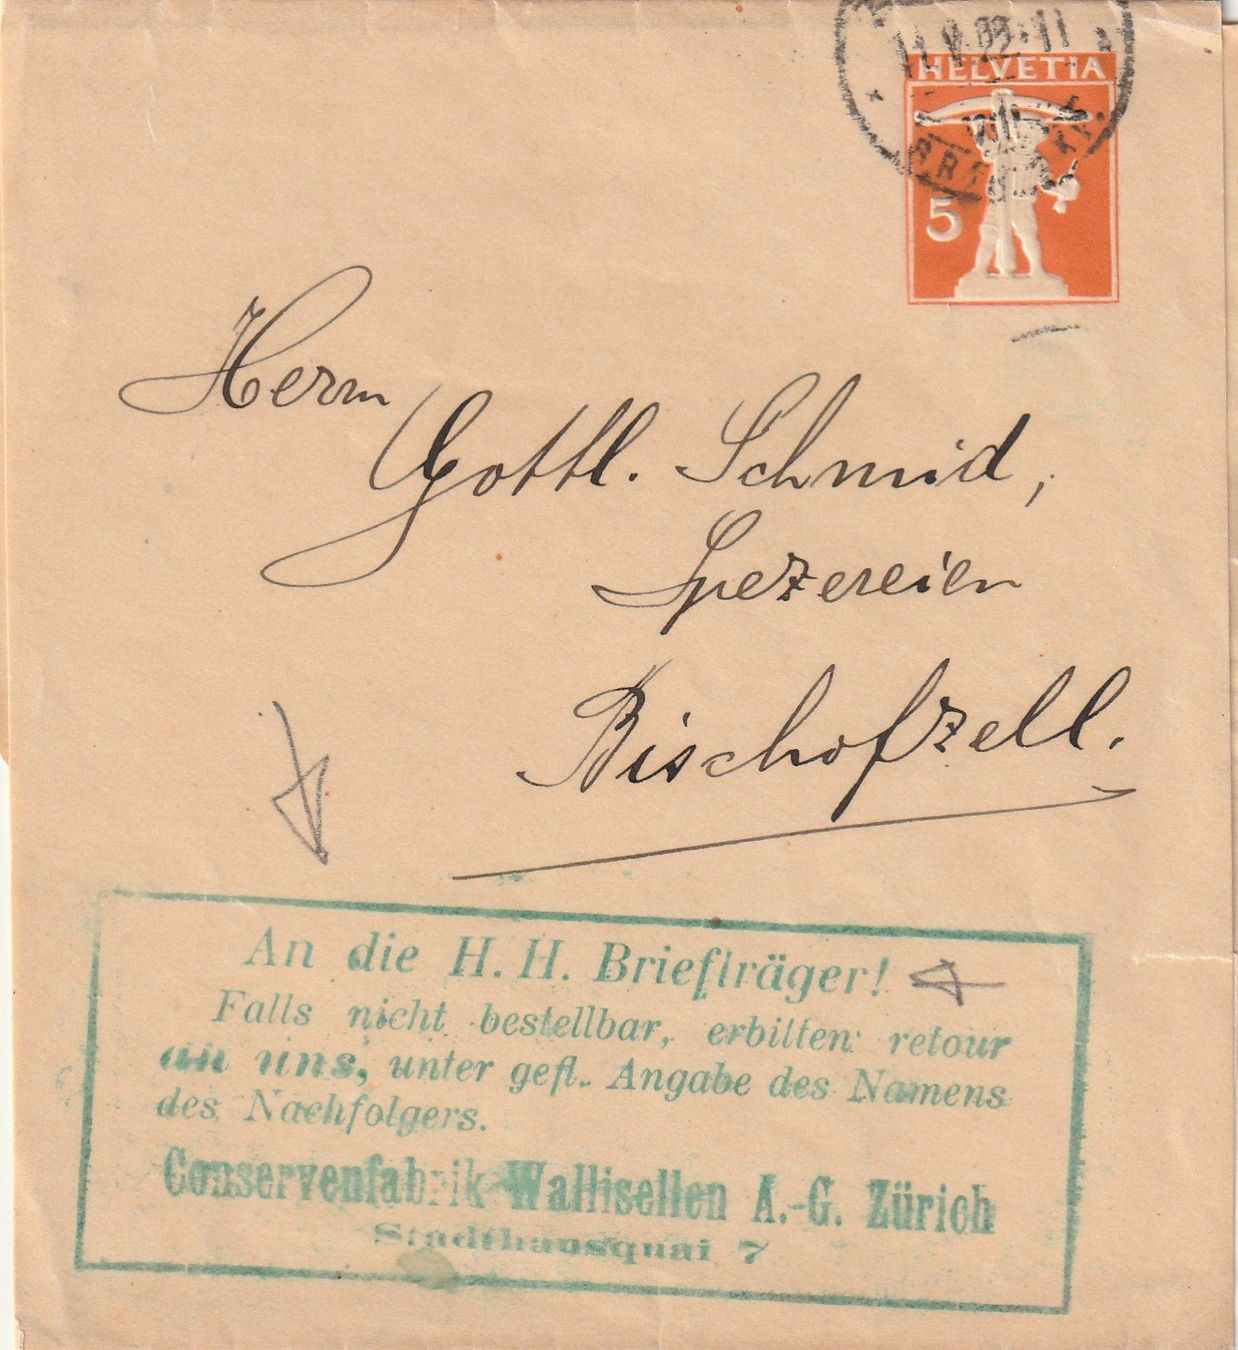 HELVETIA
5
Herrn
Gottl. Schmid,
Spezereien
Bischofzell.
An die H. H. Briefträger!
Falls nicht bestellbar, erbitten retour
an uns, unter gefl. Angabe des Namens
des Nachfolgers.
Conservenfabrik Wallisellen A.-G. Zürich
Stadthausquai 7